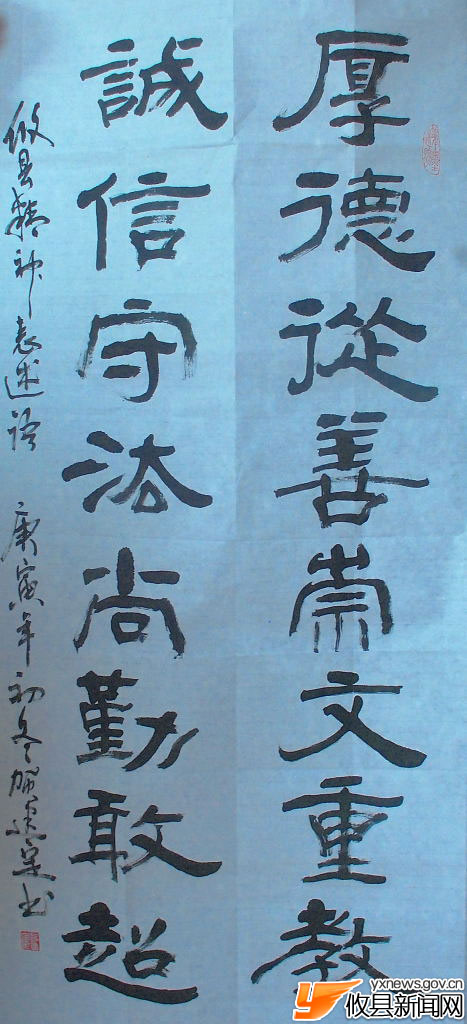 厚德從善崇文重教
誠信守法尚勤敢超
攸县精神表述语 庚寅年初冬
yxnews.gov.cn
攸县新闻网